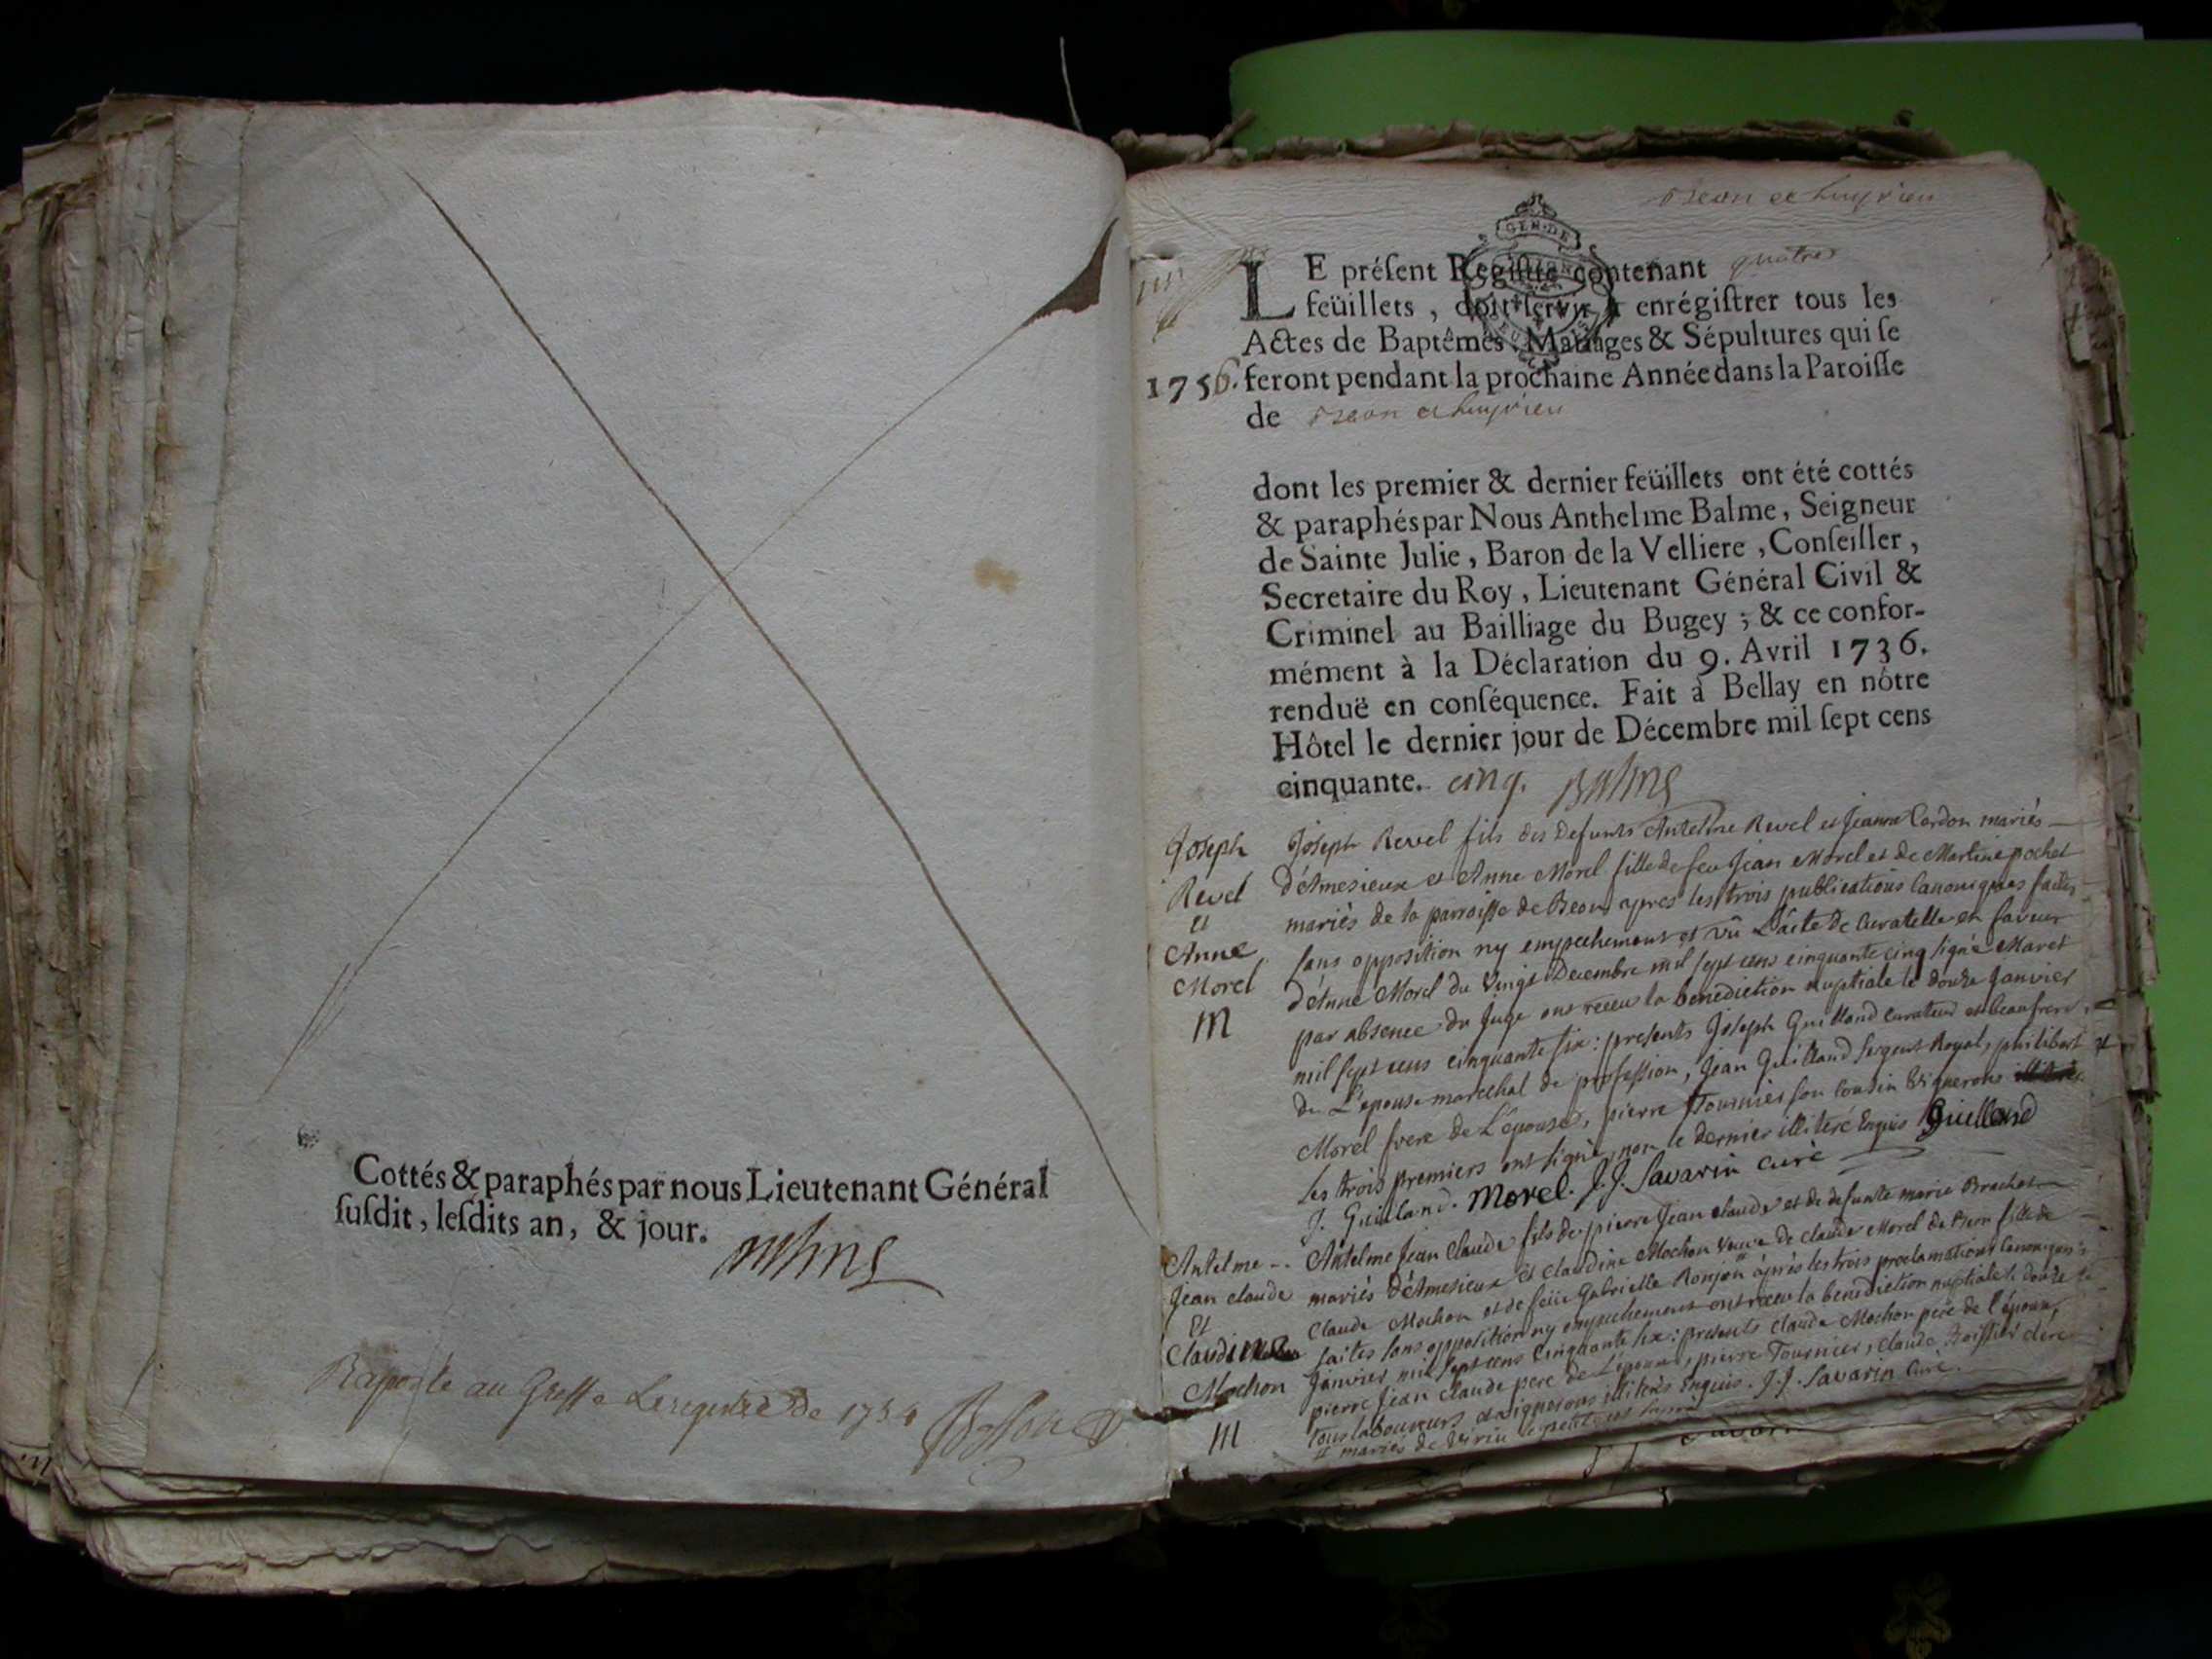 Cottés & paraphés par nous Lieutenant Général
ſuſdit, leſdits an, & jour.
Balme
Raporte au Greffe Le registre de 1754
Beon et Luyrieu
GEN·DE
LE préſent Regiſtre contenant quatre
feüillets, doit ſervir à enrégiſtrer tous les
Actes de Baptêmes, Mariages & Sépultures qui ſe
1756. feront pendant la prochaine Année dans la Paroiſſe
de Beon et Luyrieu
dont les premier & dernier feüillets ont été cottés
& paraphés par Nous Anthelme Balme, Seigneur
de Sainte Julie, Baron de la Velliere, Conſeiller,
Secretaire du Roy, Lieutenant Général Civil &
Criminel au Bailliage du Bugey; & ce confor-
mément à la Déclaration du 9. Avril 1736.
renduë en conſéquence. Fait à Bellay en nôtre
Hôtel le dernier jour de Décembre mil ſept cens
cinquante. cinq. Balme
Joseph
Revel
et
Anne
Morel
M
Joseph Revel fils des defunts Antelme Revel et Jeanne Cardon mariés
d'Amesieux et Anne Morel fille de feu Jean Morel et de Martine pochet
mariés de la parroisse de Beon apres les trois publications Canoniques faites
sans opposition ny empechement et vû L'acte de Curatelle en faveur
d'Anne Morel du Vingt Decembre mil sept cens cinquante cinq signé Maret
par absence du Juge ont receu la benediction nuptiale le douze Janvier
mil sept cens cinquante six: presents Joseph Guilland Curateur et beaufrere
de L'epouse marechal de profession, Jean Guilland sergent Royal, philibert
Morel frere de L'épouse, pierre Tournier son Cousin Vignerons
Les trois premiers ont signé, non le dernier illiteré Enquis Guilland
J. Guilland. Morel. J.J. Savarin curé
Antelme
Jean claude
Et
Claudine
Mochon
M
Antelme Jean Claude fils de pierre Jean claude et de defunte marie Brachet
mariés d'Amesieux et Claudine Mochon Veuve de Claude Morel de Beon fille de
Claude Mochon et de feüe Gabrielle Ronjon # après les trois proclamations Canoniques
faites sans opposition ny empechement ont receu la benediction nuptiale le douze
Janvier mil sept cens Cinquante six: presents Claude Mochon pere de l'épouse,
pierre Jean Claude pere de L'époux, pierre Tournier, Claude
tous laboureurs et vignerons illiterés Enquis. J.J. Savarin Curé.
# mariés de Virieu le petit